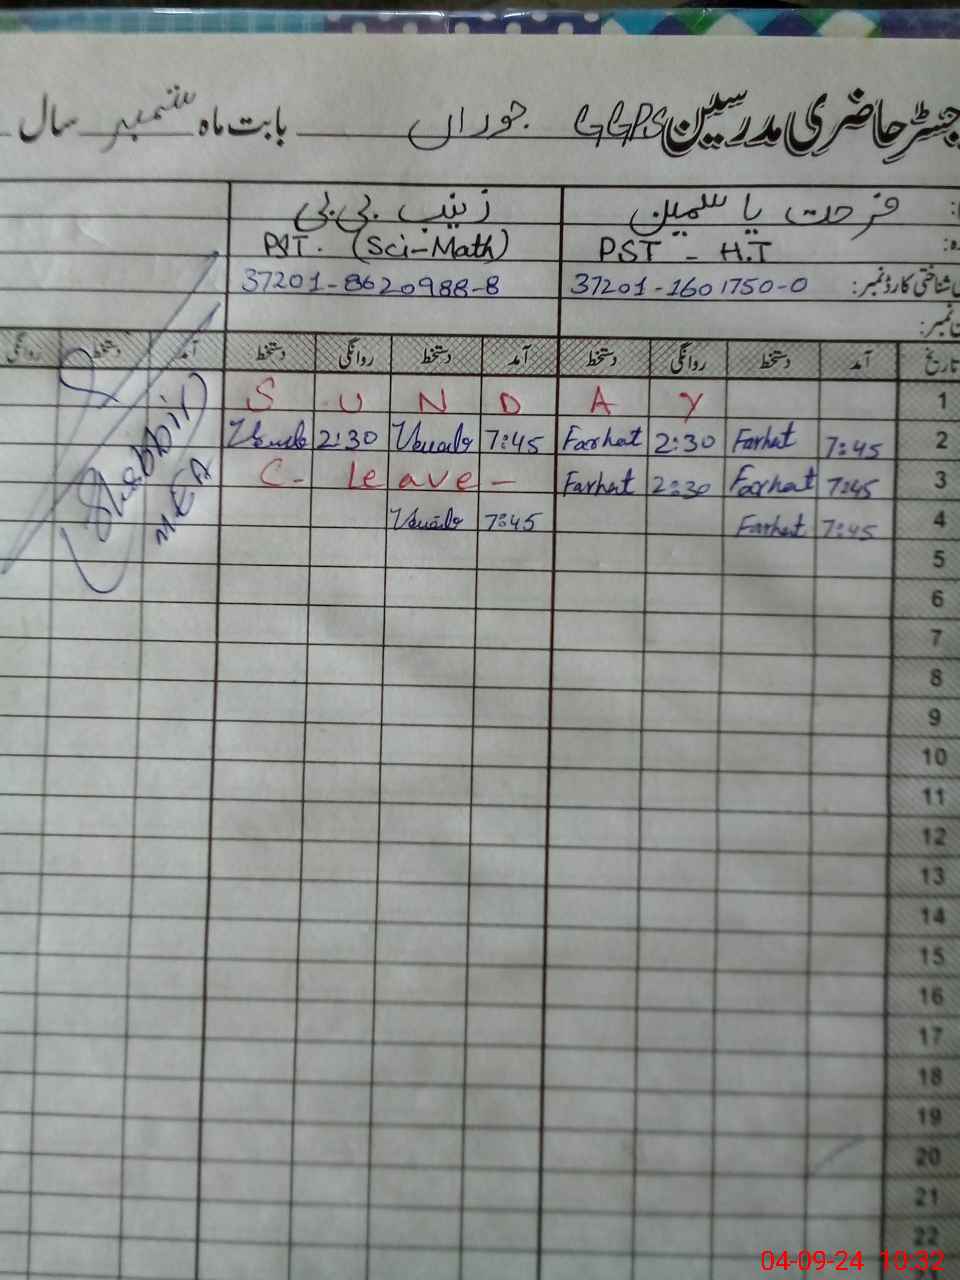 رجسٹر حاضری مدرسین GGPS جوراں بابت ماہ ستمبر سال
فرحت یاسمین زینب بی بی
PST - H.T PST. (Sci-Math)
شناختی کارڈ نمبر: 37201-1601750-0 37201-8620988-8
نمبر:
تاریخ آمد دستخط روانگی دستخط آمد دستخط روانگی دستخط آمد دستخط روانگی
1 S U N D A Y
2 7:45 Farhat 2:30 Farhat 7:45 2:30
3 7:45 Farhat 2:30 Farhat C- Leave -
4 7:45 Farhat 7:45
Shabbir
MEA
5
6
7
8
9
10
11
12
13
14
15
16
17
18
19
20
21
22
04-09-24 10:32